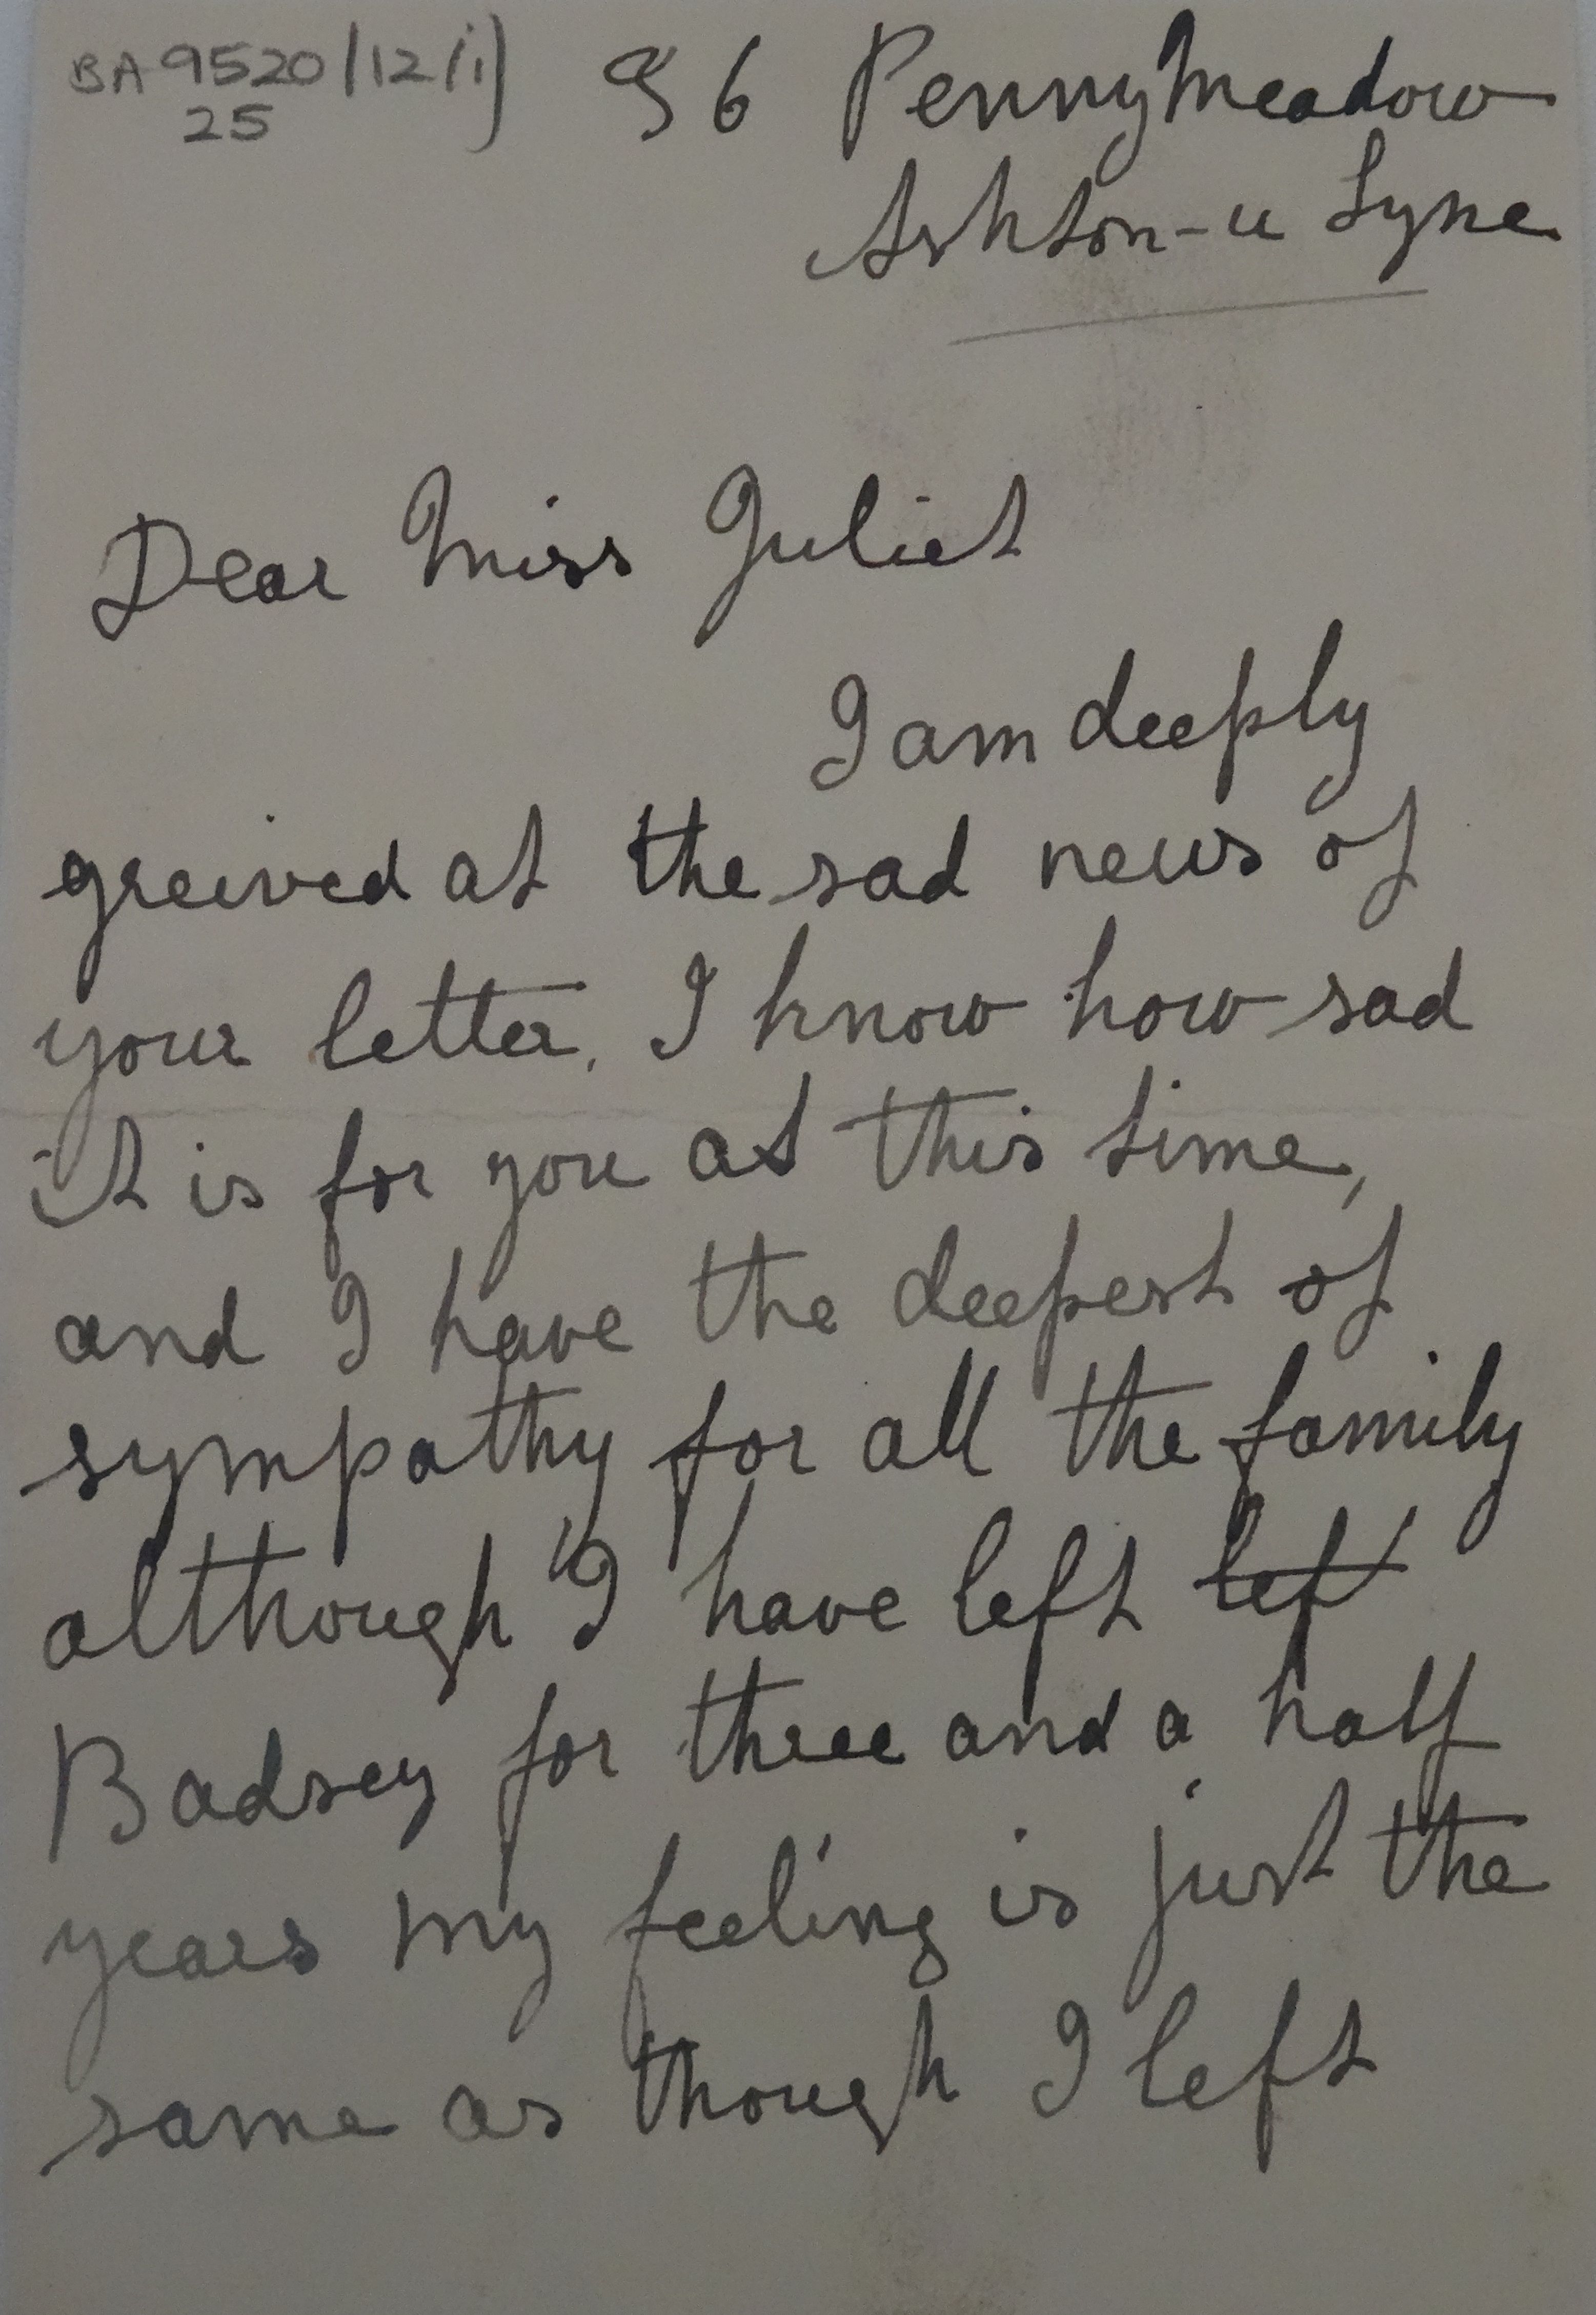 BA 9520/12/i)
25
56 Pennymeadow
Ashton-u Lyne
Dear Miss Juliet
I am deeply
greived at the sad news of
your letter. I know how sad
it is for you at this time,
and I have the deepest of
sympathy for all the family
although I have left left
Badsey for three and a half
years my feeling is just the
same as though I left